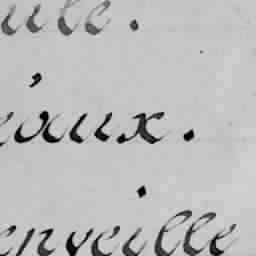 ule.
éaux.
enveille